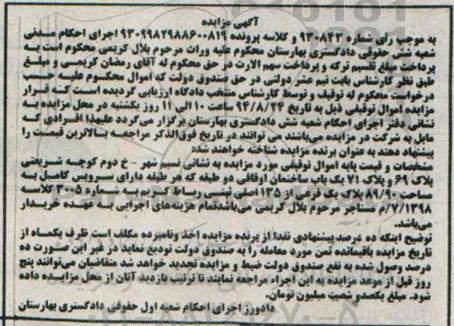 آگهی مزایده
به موجب رای شماره ۹۳۰۸۴۳ و کلاسه پرونده ۹۳۰۹۹۸۲۹۸۸۶۰۰۸۱۹ اجرای احکام مدنی
شعبه شش حقوقی دادگستری بهارستان محکوم علیه وراث مرحوم بلال کریمی محکوم است به
پرداخت مبلغ تقسیم ترکه و پرداخت سهم الارث در حق محکوم له آقای رمضان کریمی و مبلغ
طبق نظر کارشناس بابت نیم عشر دولتی در حق صندوق دولت که اموال محکوم علیه حسب
درخواست محکوم له توقیف و توسط کارشناس منتخب دادگاه ارزیابی گردیده است که قرار
مزایده اموال توقیفی ذیل به تاریخ ۹۴/۸/۲۴ ساعت ۱۰ الی ۱۱ روز یکشنبه در محل مزایده به
نشانی دفتر اجرای احکام شعبه شش دادگستری بهارستان برگزار می گردد علیهذا افرادی که
مایل به شرکت در مزایده می‌باشند می توانند در تاریخ فوق‌الذکر مراجعه بالاترین قیمت را
پیشنهاد دهند به عنوان برنده مزایده شناخته خواهند شد:
مشخصات و قیمت پایه اموال توقیفی مورد مزایده به نشانی نسیم شهر - خ دوم کوچه شریعتی
پلاک ۶۹ و پلاک ۷۱ یک باب ساختمان اوقافی دو طبقه که هر طبقه دارای سرویس کامل به
مساحت ۸۹/۹۰ پلاک یک فرعی از ۱۳۵ اصلی نیسی رباط کریم به شماره ۳۰۰۵ کلاسه
۷/۱۳۹۸/م مستاجر مرحوم بلال کریمی می‌باشد.تمام هزینه‌های اجرایی به عهده خریدار
می‌باشد.
توضیح اینکه ده درصد پیشنهادی نقدا از برنده مزایده اخذ و نامبرده مکلف است ظرف یکماه از
تاریخ مزایده باقیمانده ثمن مورد معامله را به صندوق دولت تودیع نماید در غیر این صورت ده
درصد وصول شده به نفع صندوق دولت ضبط و مزایده تجدید خواهد شد متقاضیان می‌توانند پنج
روز قبل از موعد مزایده به این اجراء مراجعه نمایند تا ترتیب بازدید آنان از محل مزایده داده
شود. مبلغ یکصد و شصت میلیون تومان.
دادورز اجرای احکام شعبه اول حقوقی دادگستری بهارستان